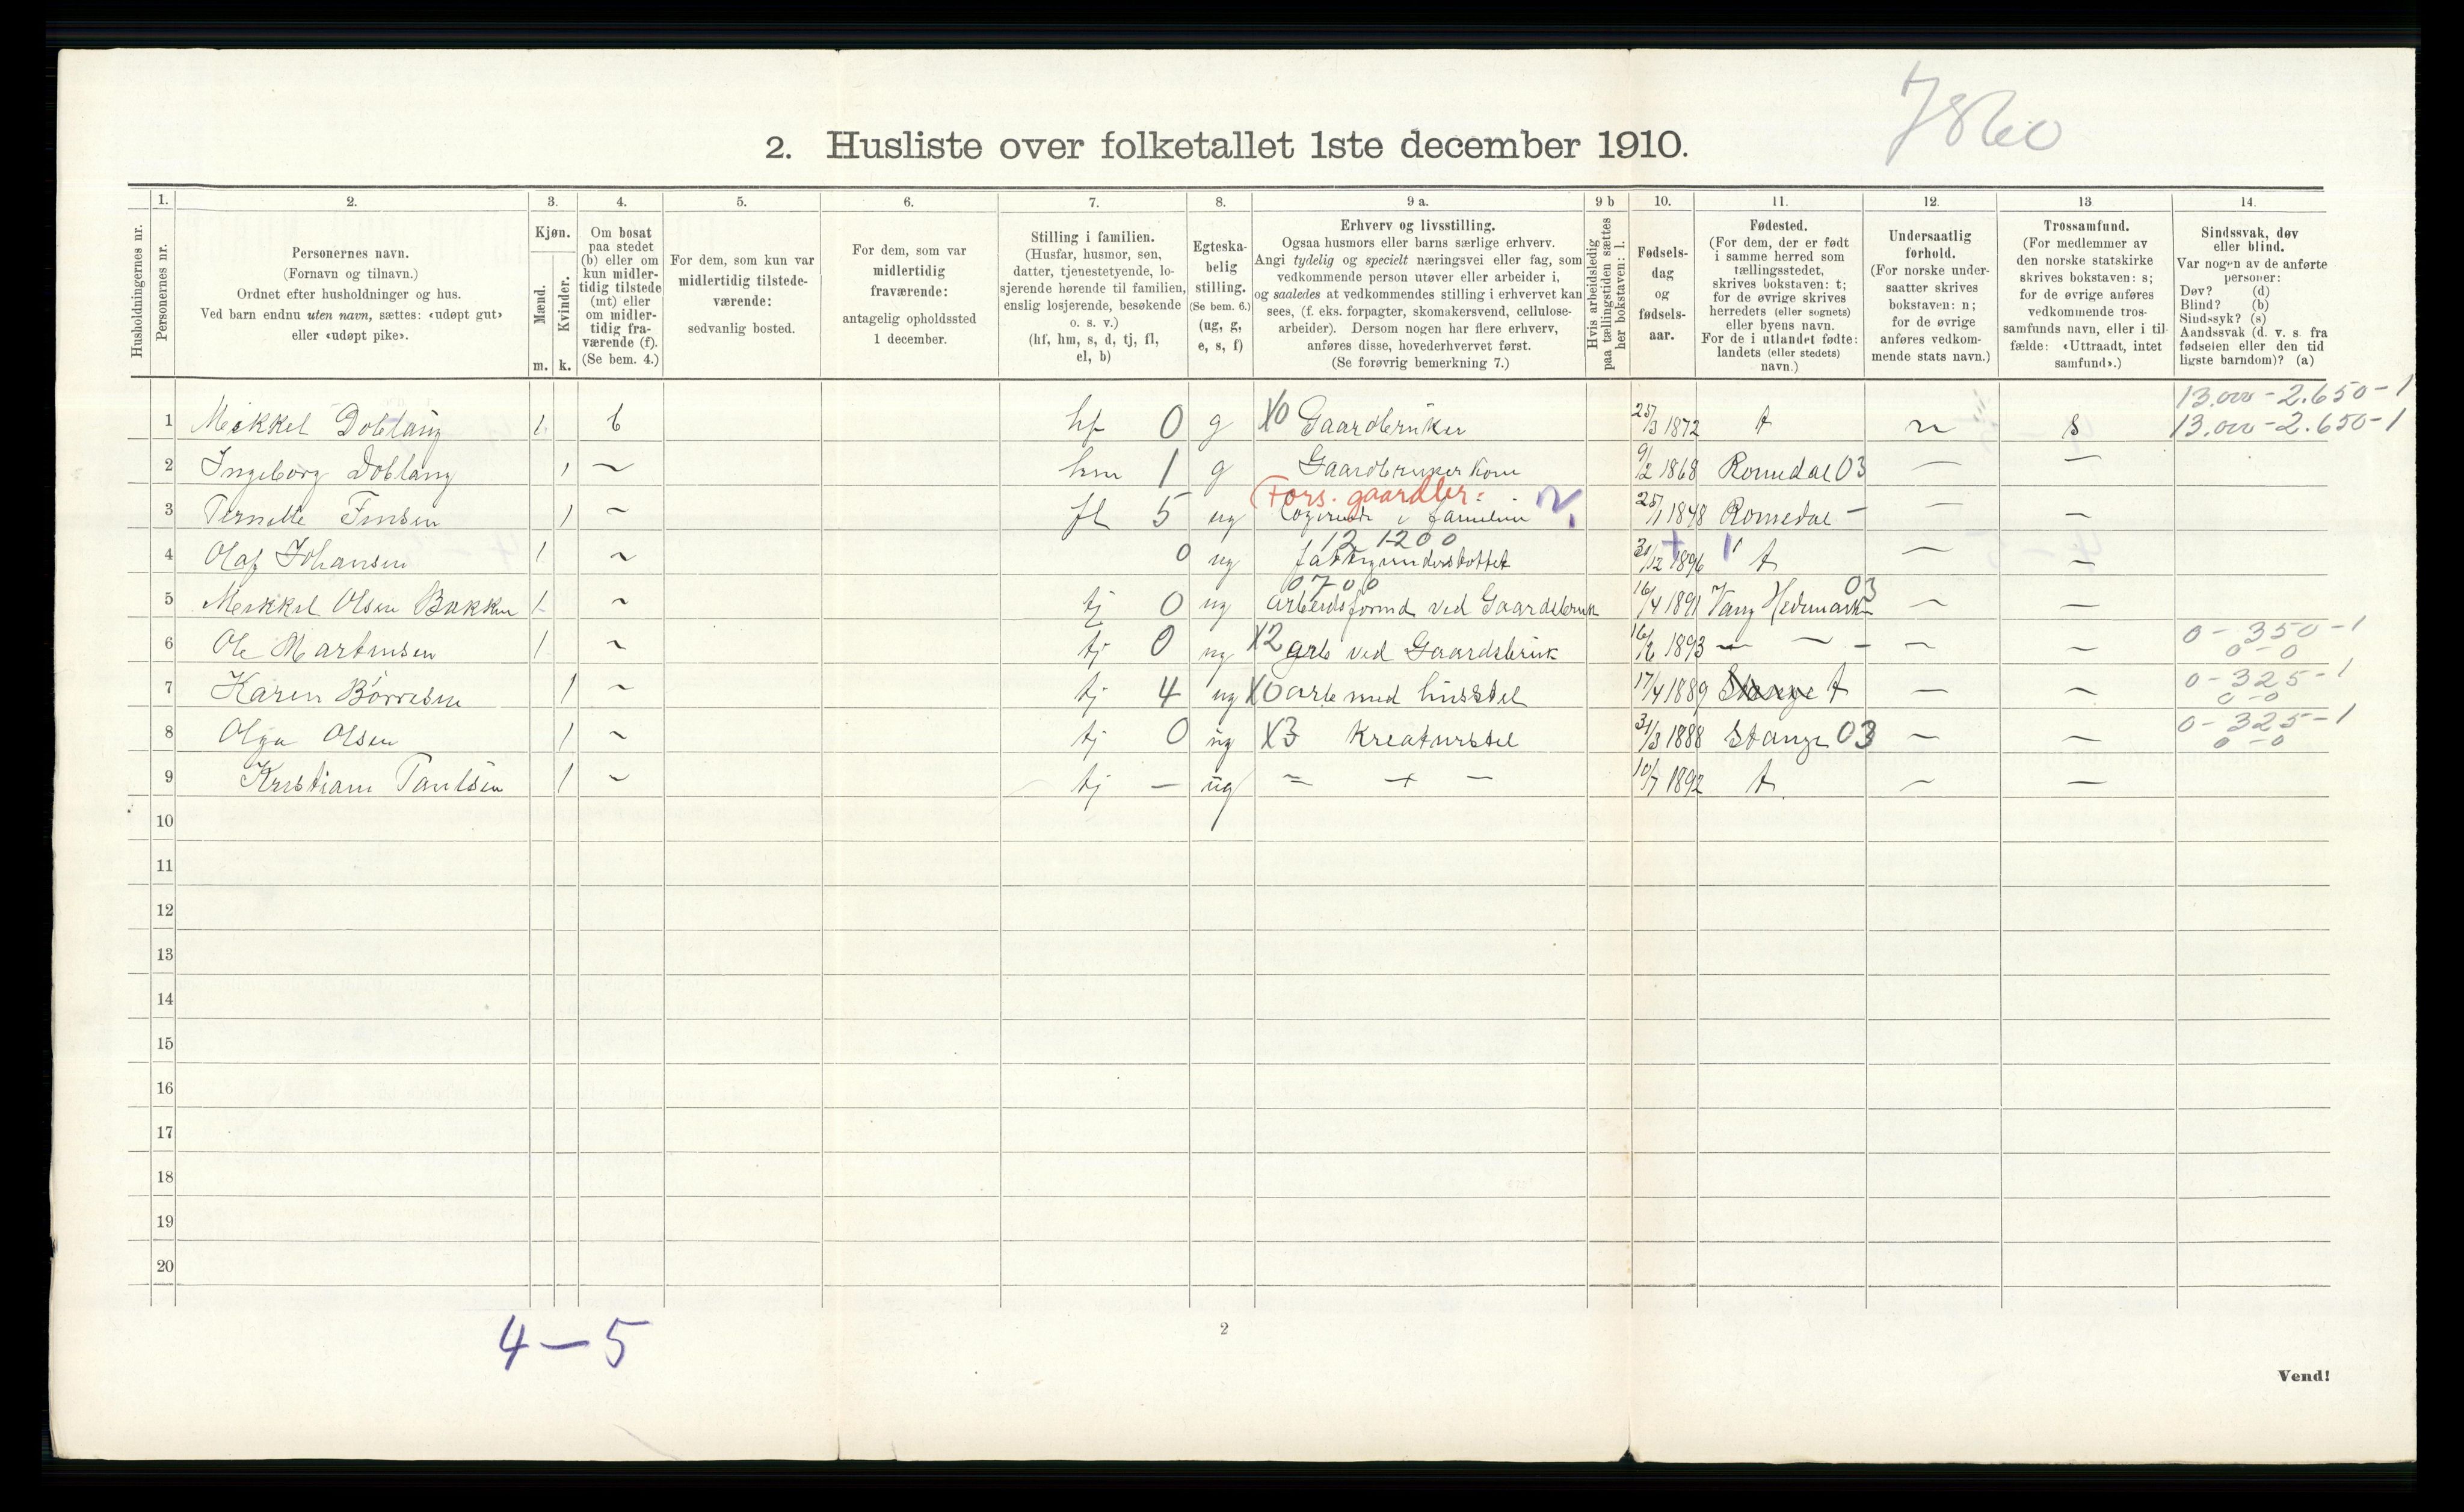 7860
2. Husliste over folketallet 1ste december 1910.
Husholdningernes nr.
1. Personernes nr.
2. Personernes navn.
(Fornavn og tilnavn.)
Ordnet efter husholdninger og hus.
Ved barn endnu uten navn, sættes: «udøpt gut»
eller «udøpt pike».
3. Kjøn.
Mænd. m.
Kvinder. k.
4. Om bosat
paa stedet
(b) eller om
kun midler-
tidig tilstede
(mt) eller
om midler-
tidig fra-
værende (f).
(Se bem. 4.)
5. For dem, som kun var
midlertidig tilstede-
værende:
sedvanlig bosted.
6. For dem, som var
midlertidig
fraværende:
antagelig opholdssted
1 december.
7. Stilling i familien.
(Husfar, husmor, søn,
datter, tjenestetyende, lo-
sjerende hørende til familien,
enslig losjerende, besøkende
o. s. v.)
(hf, hm, s, d, tj, fl,
el, b)
8. Egteska-
belig
stilling.
(Se bem. 6.)
(ug, g,
e, s, f)
9 a. Erhverv og livsstilling.
Ogsaa husmors eller barns særlige erhverv.
Angi tydelig og specielt næringsvei eller fag, som
vedkommende person utøver eller arbeider i,
og saaledes at vedkommendes stilling i erhvervet kan
sees, (f. eks. forpagter, skomakersvend, cellulose-
arbeider). Dersom nogen har flere erhverv,
anføres disse, hovederhvervet først.
(Se forøvrig bemerkning 7.)
9 b Hvis arbeidsledig
paa tællingstiden sættes
her bokstaven: l.
10. Fødsels-
dag
og
fødsels-
aar.
11. Fødested.
(For dem, der er født
i samme herred som
tællingsstedet,
skrives bokstaven: t;
for de øvrige skrives
herredets (eller sognets)
eller byens navn.
For de i utlandet fødte:
landets (eller stedets)
navn.)
12. Undersaatlig
forhold.
(For norske under-
saatter skrives
bokstaven: n;
for de øvrige
anføres vedkom-
mende stats navn.)
13 Trossamfund.
(For medlemmer av
den norske statskirke
skrives bokstaven: s;
for de øvrige anføres
vedkommende tros-
samfunds navn, eller i til-
fælde: «Uttraadt, intet
samfund».)
14. Sindssvak, døv
eller blind.
Var nogen av de anførte
personer:
Døv? (d)
Blind? (b)
Sindssyk? (s)
Aandssvak (d. v. s. fra
fødselen eller den tid
ligste barndom)? (a)
13.000-2.650-1
1 Mikkel Doblaug 1 b hf 0 g X0 Gaardbruker 25/3 1872 t n s 13.000-2.650-1
2 Ingeborg Doblaug 1 ~ hm 1 g Gaardbruker Kone 9/2 1868 Romedal 03 — —
Fors. gaardbr:
3 Pernelle Finsen 1 ~ fl 5 ug Logerende i familien 25/1 1848 Romedal — — —
12 1200
4 Olaf Johansen 1 ~ 0 ug fattigunderstøttet 31/12 1896 t — ~
0700
5 Mikkel Olsen Bakken 1 ~ tj 0 ug Arbeidsformd ved Gaardsbruk 16/4 1891 Vang Hedmarken 03 ~ —
0-350-1
6 Ole Martinsen 1 ~ tj 0 ug X2 arb ved Gaardsbruk 16/6 1893 — ~ — ~ ~ 0-0
0-325-1
7 Karen Børresen 1 ~ tj 4 ug X0 arb med husstel 17/4 1889 Stange t — ~ 0-0
0-325-1
8 Olga Olsen 1 ~ tj 0 ug X3 Kreaturstel 31/3 1888 Stange 03 ~ ~ 0-0
9 Kristiane Paulsen 1 ~ tj — ug = + — 10/7 1892 t ~ —
10
11
12
13
14
15
16
17
18
19
20
4-5
2
Vend!